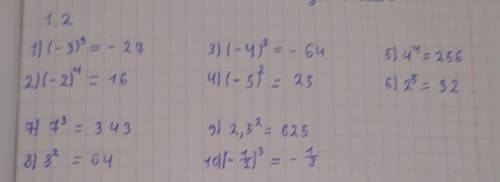 1,2
1) (-3)³ = - 27
2) (-2)⁴ = 16
3) (-4)³ = - 64
4) (-5)² = 25
5) 4⁴ = 256
6) 2⁵ = 32
7) 7³ = 343
8) 8² = 64
9) 2,5² = 625
10) (-1/2)³ = - 1/8